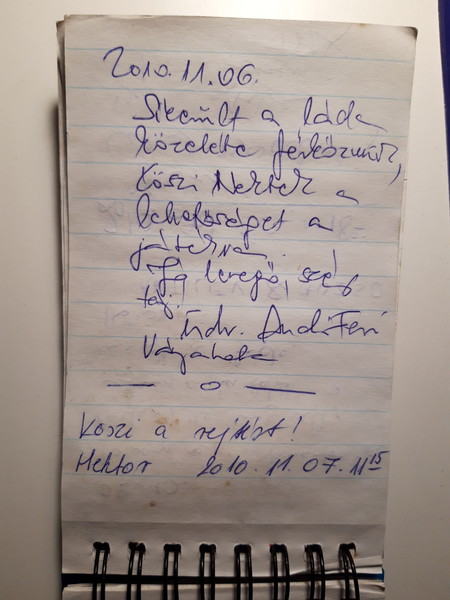 2010.11.06.
Sikerült a láda
közelébe férkőznünk,
Köszi Nektek a
lehetőséget a
játékra.
Jó levegő, szép
táj!
Üdv. AndiFeri
— o —
Köszi a rejtést!
Hektor 2010.11.07. 11 15